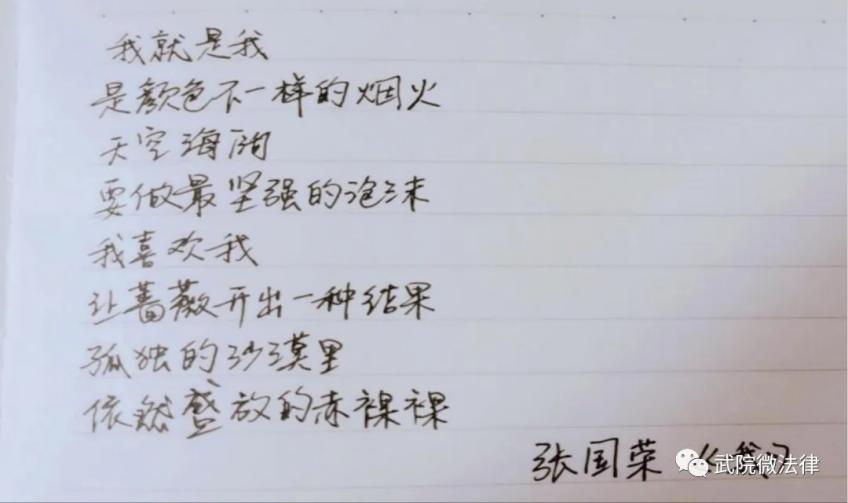 我就是我
是颜色不一样的烟火
天空海阔
要做最坚强的泡沫
我喜欢我
让蔷薇开出一种结果
孤独的沙漠里
依然盛放的赤裸裸
张国荣《我》
武院微法律